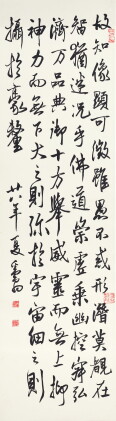 故知像顯可徵雖愚不惑形潛莫覩在
智猶迷況乎佛道崇虛乘幽控寂弘
濟万品典御十方舉威靈而無上抑
神力而無下大之則弥於宇宙細之則
攝於豪釐 廿八年夏